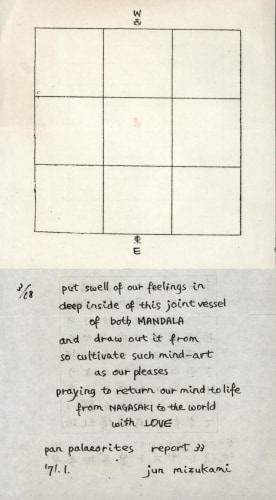 W
西
東
E
3/28 put swell of our feelings in
deep inside of this joint vessel
of both MANDALA
and draw out it from
so cultivate such mind-art
as our pleases
praying to return our mind to life
from NAGASAKI to the world
with LOVE
pan palaeorites report 33
'71.1. jun mizukami